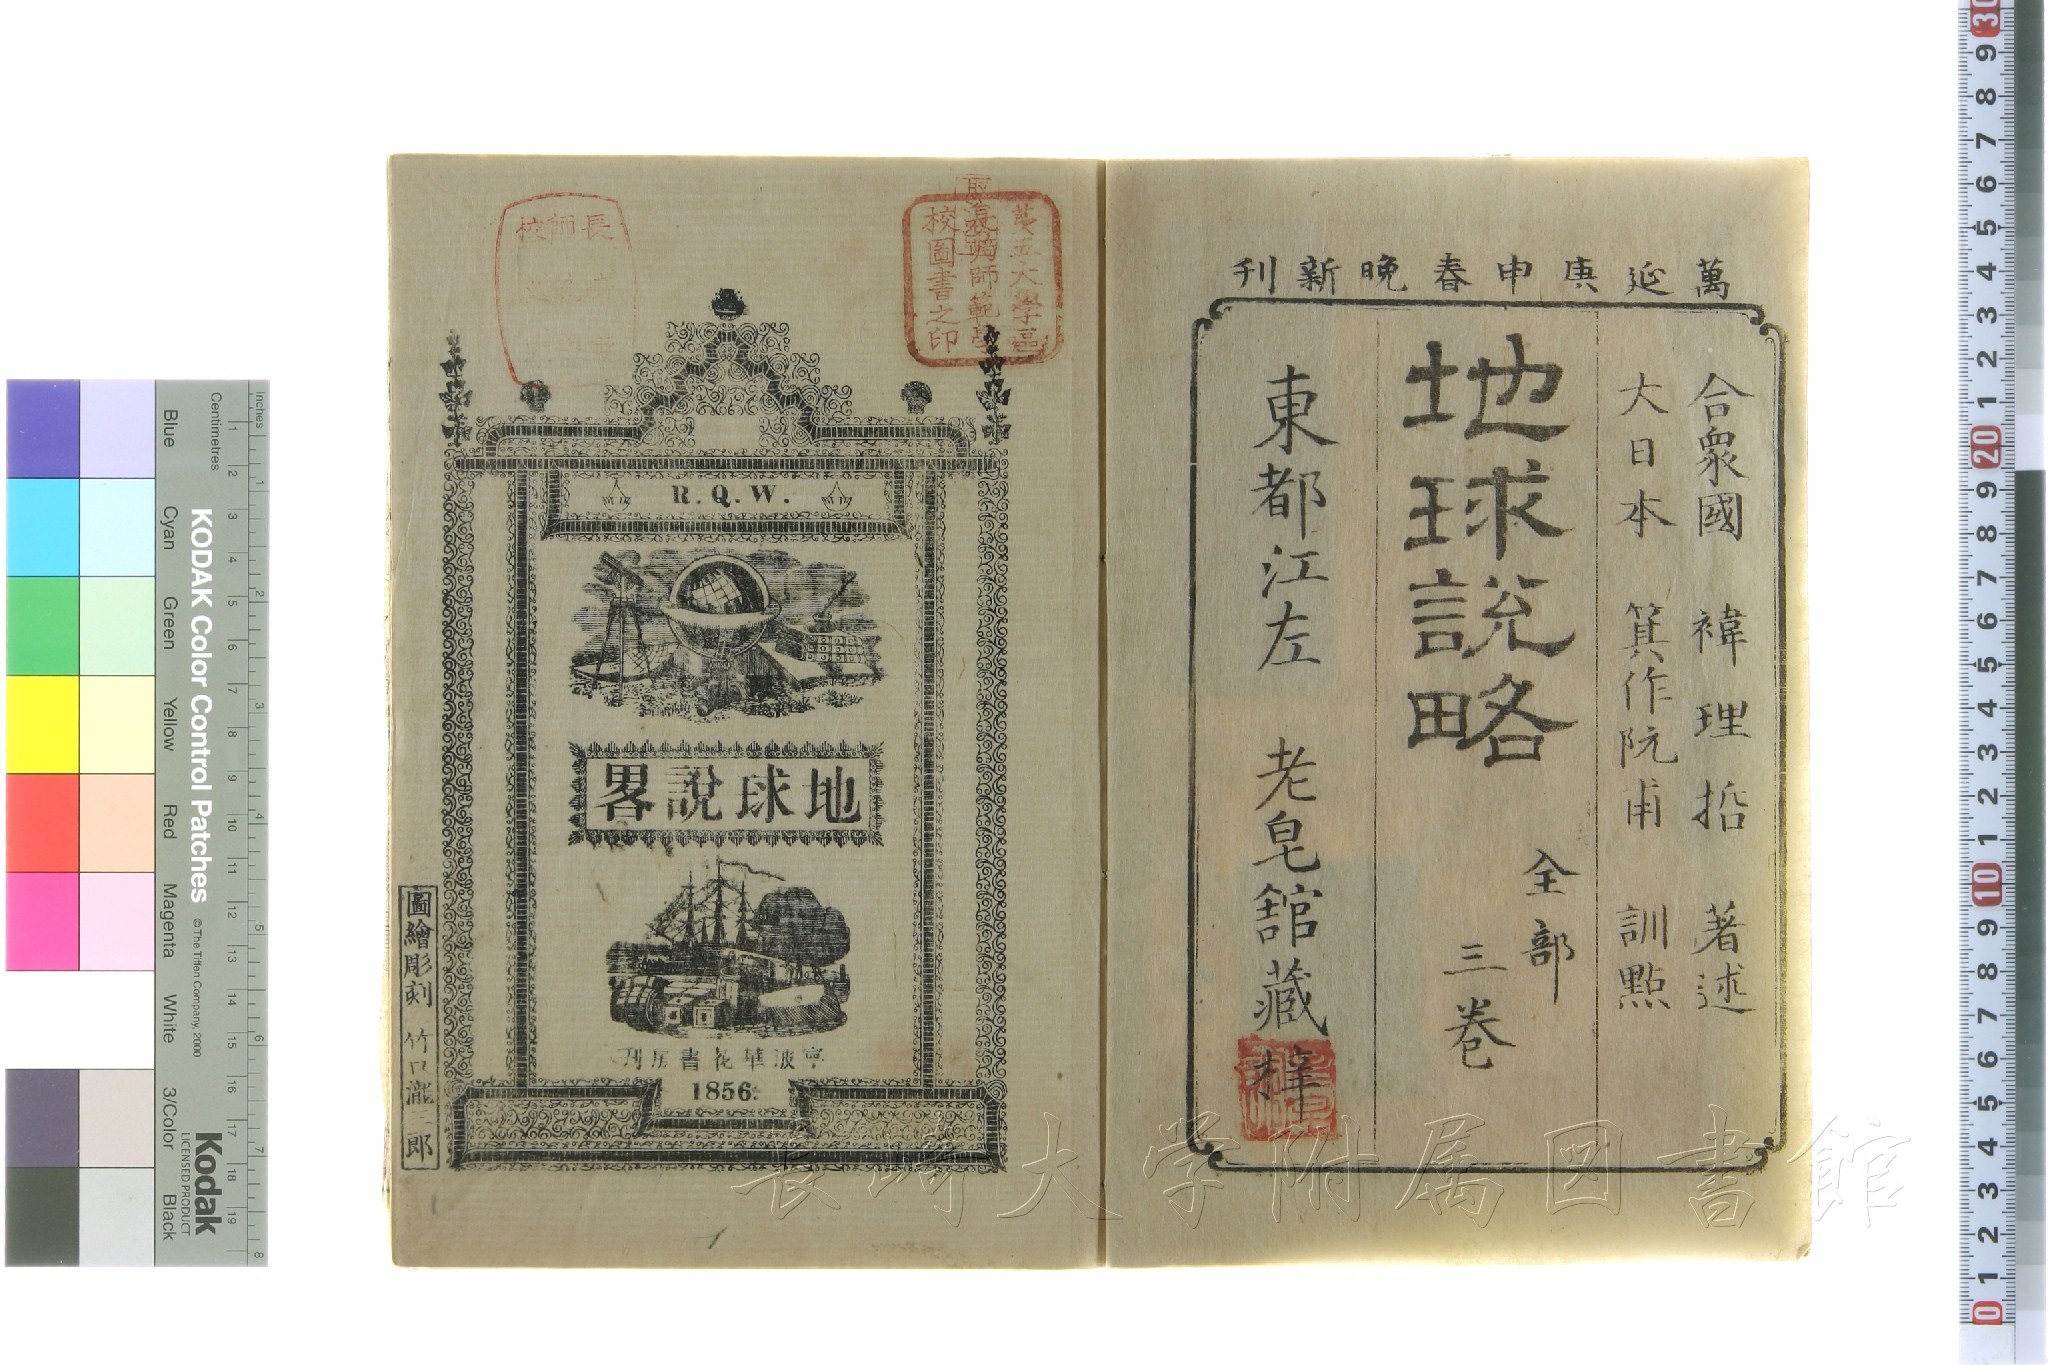 萬延庚申春晩新刊
合衆國 褘理哲 著述
大日本 箕作阮甫 訓點
地球説略
全部
三巻
東都江左 老皂舘藏梓
大學區
師範學
校圖書之印
長
師
校
R. Q. W.
地球說畧
寧波華花書房刊
1856.
圖繪彫刻 竹口瀧三郎
長崎大学附属図書館
Inches
Centimetres
KODAK Color Control Patches
© The Tiffen Company, 2000
Kodak
LICENSED PRODUCT
Blue
Cyan
Green
Yellow
Red
Magenta
White
3/Color
Black
1 2 3 4 5 6 7 8
1 2 3 4 5 6 7 8 9 10 11 12 13 14 15 16 17 18 19
30
9 8 7 6 5 4 3 2 1
20
9 8 7 6 5 4 3 2 1
10
9 8 7 6 5 4 3 2 1
0